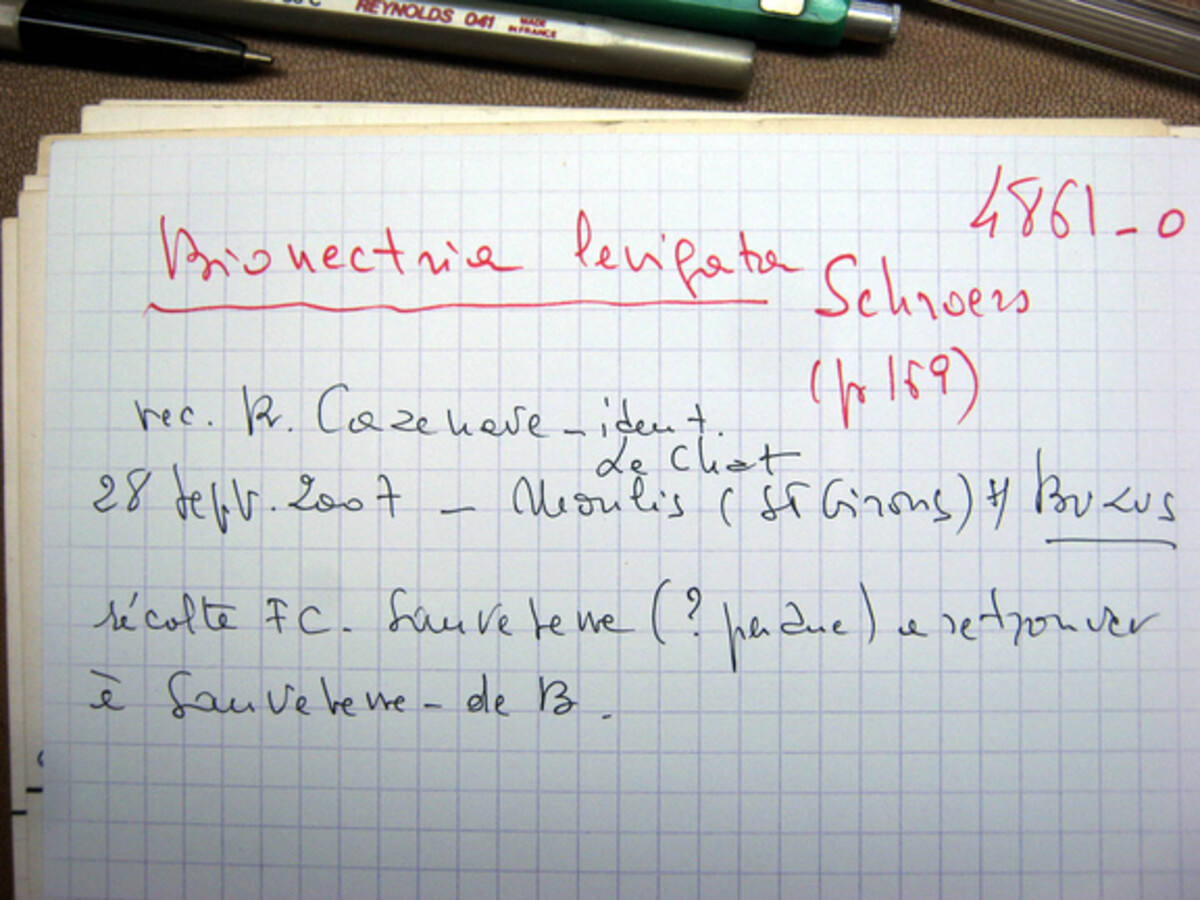 REYNOLDS 041 MADE IN FRANCE
4861-0
Bionectria levigata Schroers
(p 169)
rec. R. Cazenave - ident.
Le Chat
28 Sept. 2007 - Moulis (St Girons) s/ Buxus
récolte FC. Sauveterre (? perdue) a retrouver
à Sauveterre - de B.